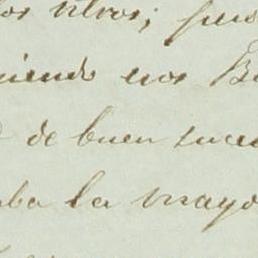 los otros; pues
iendo esos B
de buen suce
ba la mayo